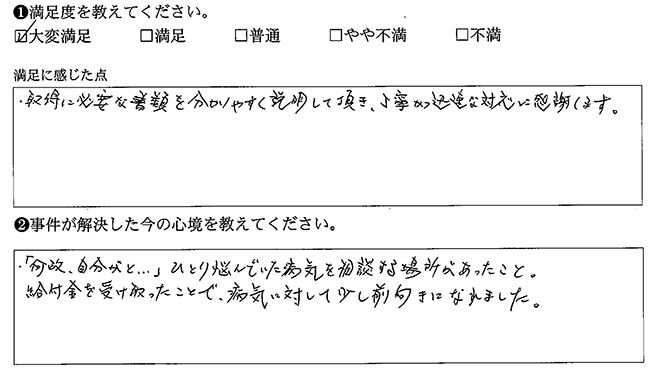 ❶満足度を教えてください。
☑大変満足 □満足 □普通 □やや不満 □不満
満足に感じた点
・取得に必要な書類を分かりやすく説明して頂き、丁寧かつ迅速な対応に感謝します。
❷事件が解決した今の心境を教えてください。
・「何故、自分がと…」ひとり悩んでいた病気を相談する場所があったこと。
給付金を受け取ったことで、病気に対して少し前向きになれました。